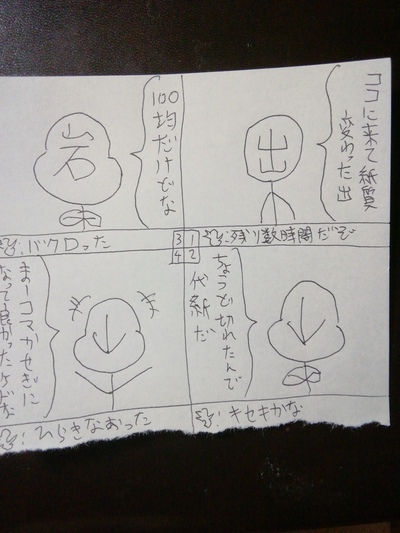 ココに来て紙質
変わった出
出
残り数時間だぞ
ちょうど切れたんで
代紙だ
キセキかな
100均だけでな
岩
バクロった
3 1
4 2
まーコマかせぎに
なって良かったケドな
ひらきなおった